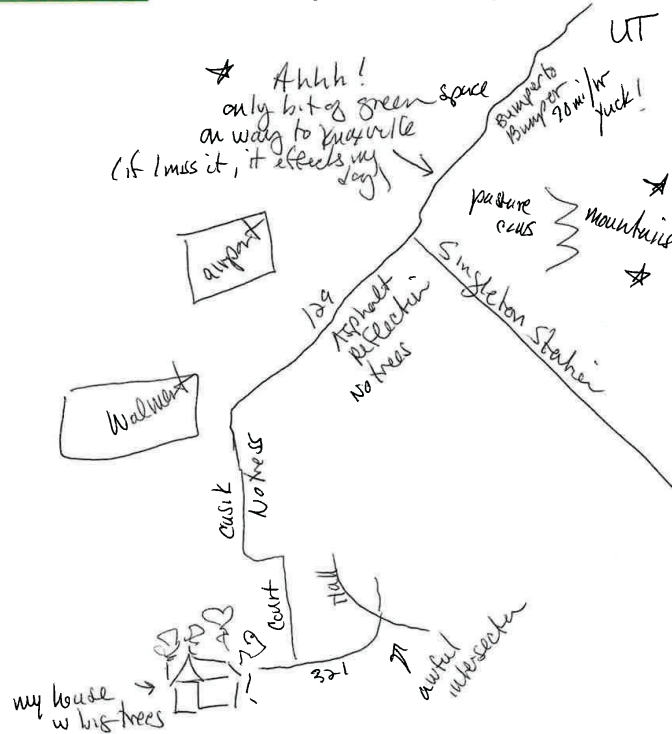 UT
Ahhh!
only bit of green space
on way to Knoxville
(if I miss it, it effects my
day)
Bumper to
Bumper 20 mi/hr
yuck!
pasture
cows
mountains
airport
Singleton Station
129
Asphalt
Reflection
No trees
Walmart
Cusik
No tress
Court
Hall
321
awful
intersection
my house
w big trees